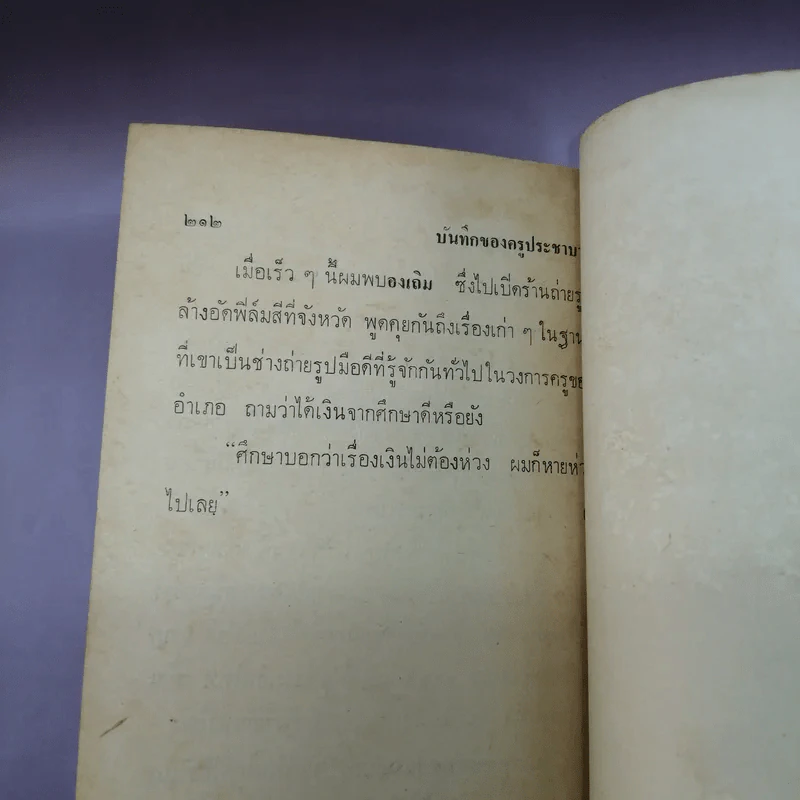 ๒๑๒
บันทึกของครูประชาบา
เมื่อเร็ว ๆ นี้ผมพบองเถิม ซึ่งไปเปิดร้านถ่ายรู
ล้างอัดฟิล์มสีที่จังหวัด พูดคุยกันถึงเรื่องเก่า ๆ ในฐาน
ที่เขาเป็นช่างถ่ายรูปมือดีที่รู้จักกันทั่วไปในวงการครูขอ
อำเภอ ถามว่าได้เงินจากศึกษาดีหรือยัง
“ศึกษาบอกว่าเรื่องเงินไม่ต้องห่วง ผมก็หายห่ว
ไปเลย”